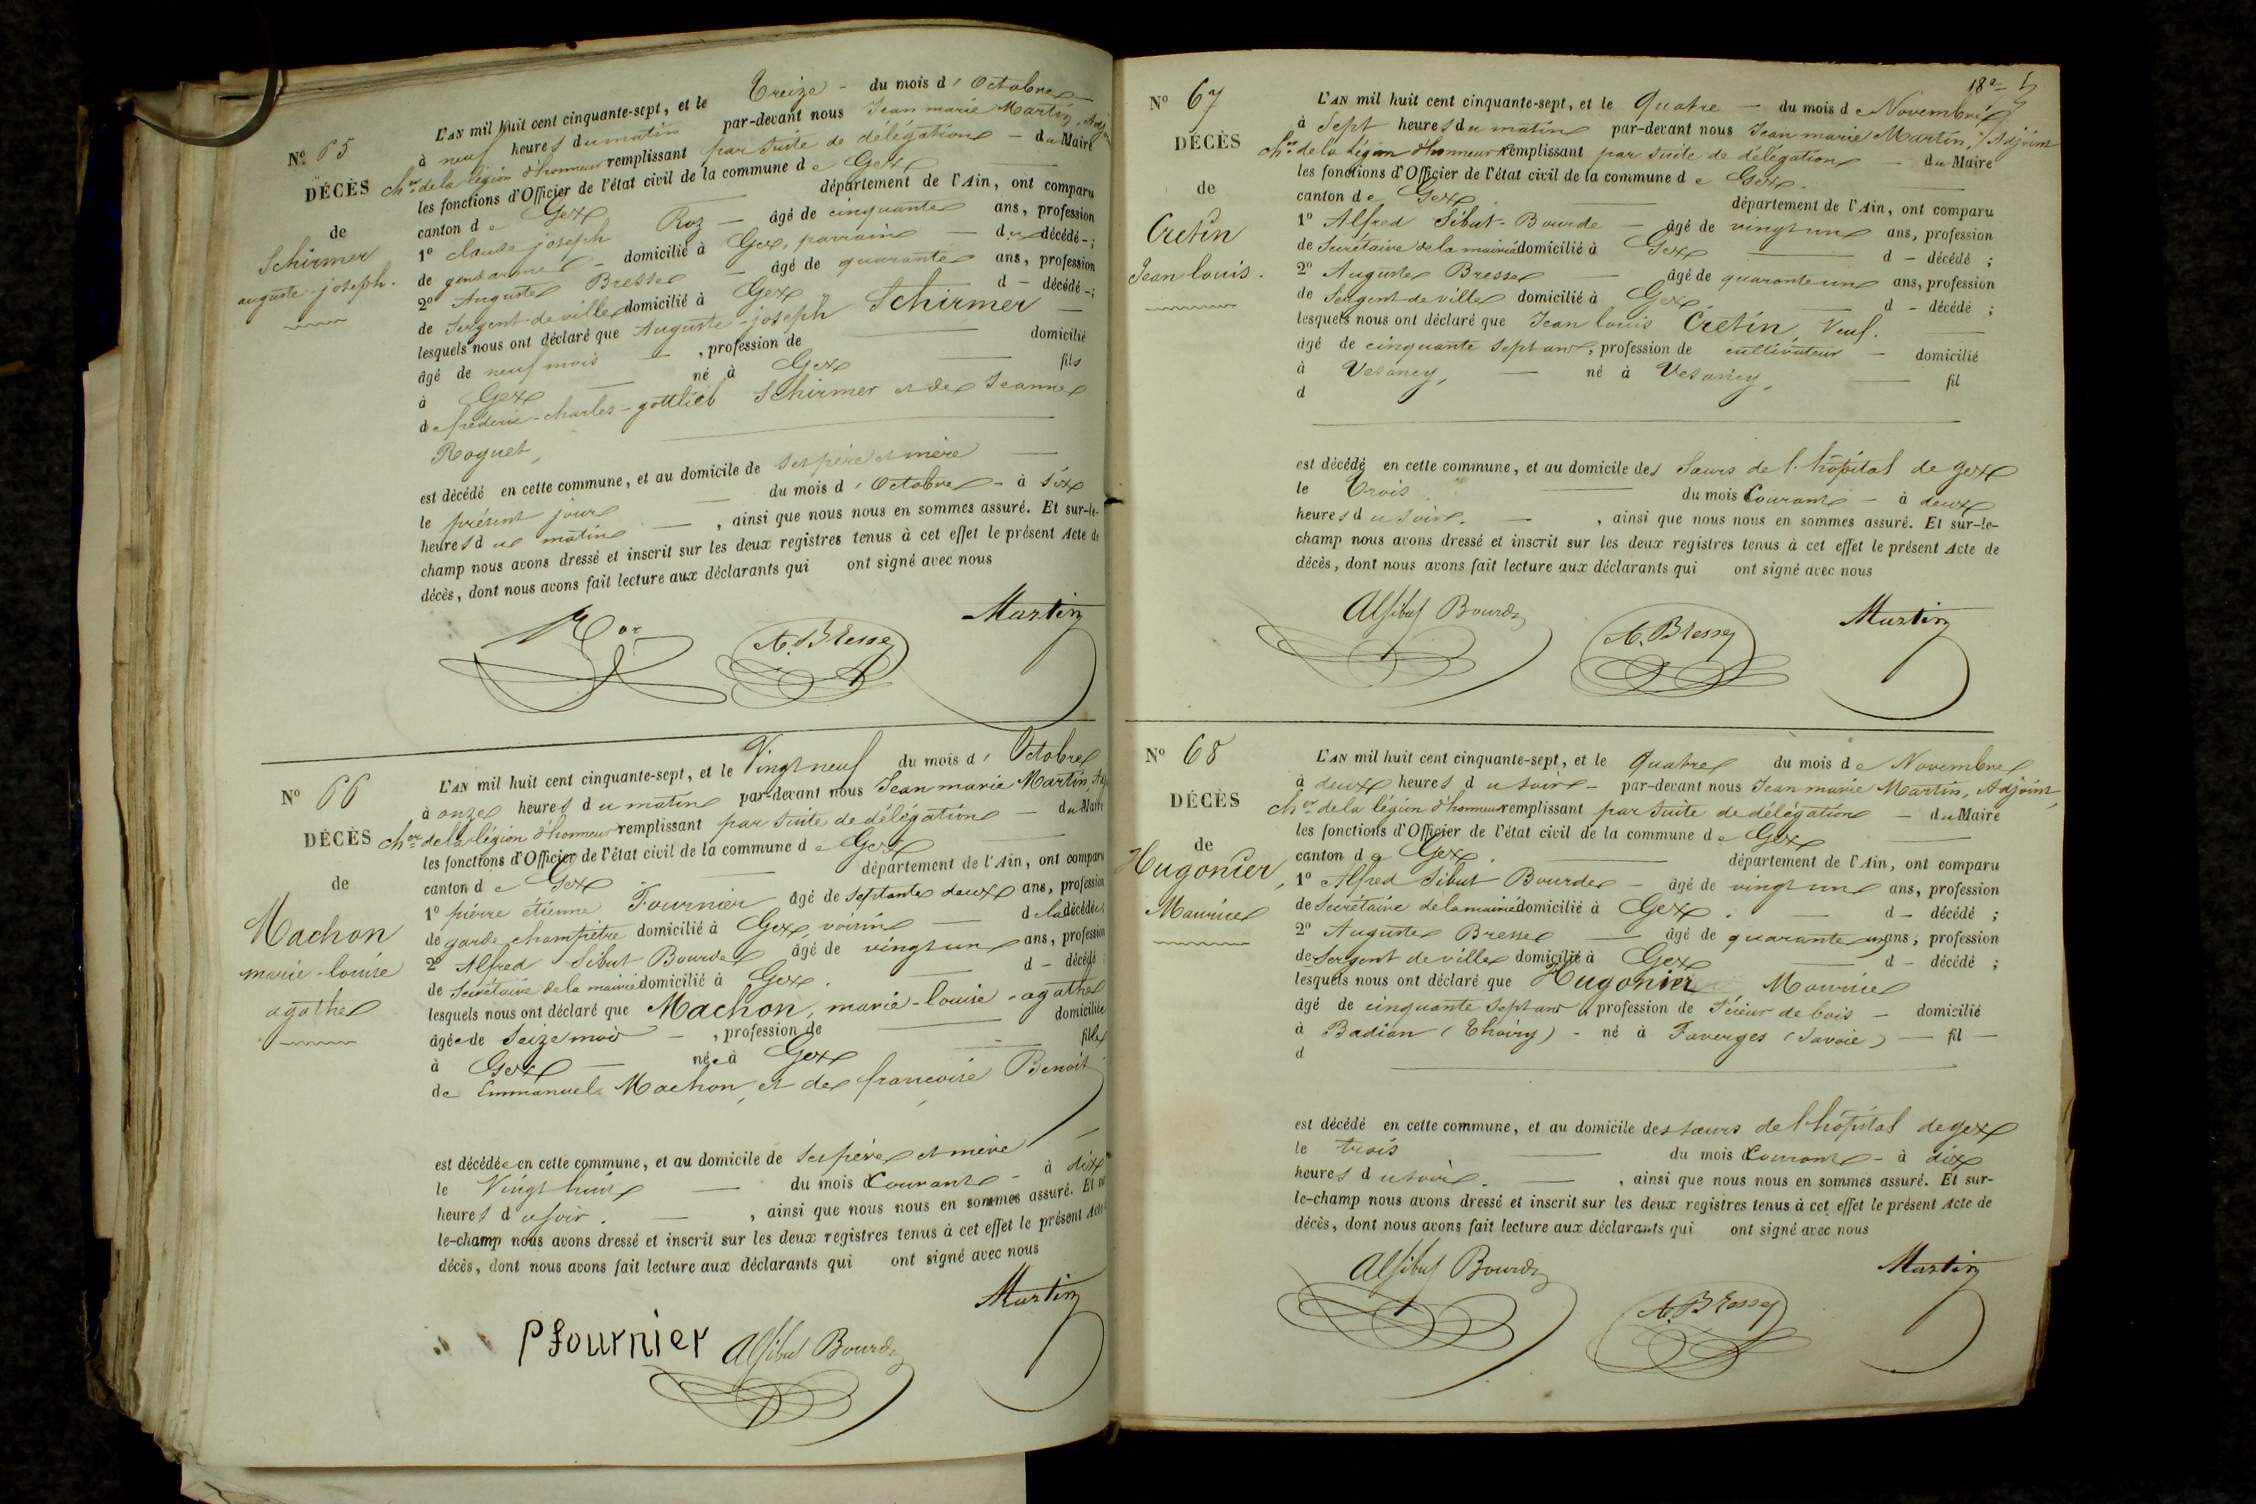 Nº 65
DÉCÈS
de
Schirmer
auguste-joseph.
L'AN mil huit cent cinquante-sept, et le Treize - du mois d' Octobre
à neuf heures du matin par-devant nous Jean marie Martin, Adj
Chᵉʳ de la légion d'honneur remplissant par suite de délégation - du Maire
les fonctions d'Officier de l'état civil de la commune de Gex
canton de Gex département de l'Ain, ont comparu
1º claude joseph Roz - âgé de cinquante ans, profession
de gendarme - domicilié à Gex, parrain - du décédé - ;
2º Auguste Bresse - âgé de quarante ans, profession
de Sergent-de ville domicilié à Gex d - décédé - ;
lesquels nous ont déclaré que Auguste-joseph Schirmer
âgé de neuf mois - , profession de domicilié
à Gex - né à Gex fils
de frédéric-charles-gottlieb Schirmer et de Jeanne
Roguet,
est décédé en cette commune, et au domicile de ses père et mère
le présent jour - du mois d' Octobre - à six
heures du matin - , ainsi que nous nous en sommes assuré. Et sur-le-
champ nous avons dressé et inscrit sur les deux registres tenus à cet effet le présent Acte de
décès, dont nous avons fait lecture aux déclarants qui ont signé avec nous
Roz A. Bresse Martin
Nº 66
DÉCÈS
de
Machon
marie-louise
agathe
L'AN mil huit cent cinquante-sept, et le Vingt neuf du mois d' Octobre
à onze heures du matin par-devant nous Jean marie Martin, Adj
Chᵉʳ de la légion d'honneur remplissant par suite de délégation - du Maire
les fonctions d'Officier de l'état civil de la commune de Gex
canton de Gex département de l'Ain, ont comparu
1º pierre étienne Fournier âgé de septante deux ans, profession
de garde champêtre domicilié à Gex, voisin - de la décédée
2º Alfred Sibut Bourde âgé de vingt un ans, profession
de Secrétaire de la mairie domicilié à Gex. d - décédé
lesquels nous ont déclaré que Machon, marie-louise-agathe
âgée de Seize mois - , profession de domiciliée
à Gex - née à Gex - fille
de Emmanuel Machon, et de françoise Benoit
est décédée en cette commune, et au domicile de ses père et mère
le Vingt huit - du mois Courant - à dix
heures du soir. - , ainsi que nous nous en sommes assuré. Et sur
le-champ nous avons dressé et inscrit sur les deux registres tenus à cet effet le présent Acte
décès, dont nous avons fait lecture aux déclarants qui ont signé avec nous
P fournier Al Sibut Bourde Martin
Nº 67
DÉCÈS
de
Cretin
Jean louis.
L'AN mil huit cent cinquante-sept, et le Quatre - du mois de Novembre
à Sept heures du matin par-devant nous Jean marie Martin, Adjoint
Chᵉʳ de la Légion d'honneur remplissant par suite de délégation - du Maire
les fonctions d'Officier de l'état civil de la commune de Gex.
canton de Gex. département de l'Ain, ont comparu
1º Alfred Sibut-Bourde - âgé de vingt un ans, profession
de Secrétaire de la mairie domicilié à Gex d - décédé ;
2º Auguste Bresse - âgé de quarante un ans, profession
de Sergent de ville domicilié à Gex. d - décédé ;
lesquels nous ont déclaré que Jean louis Cretin, Veuf.
âgé de cinquante sept ans, profession de cultivateur - domicilié
à Vesancy, - né à Vesancy, - fil
d
est décédé en cette commune, et au domicile des Sœurs de l'hôpital de Gex
le Trois du mois Courant - à deux
heures du soir. - , ainsi que nous nous en sommes assuré. Et sur-le-
champ nous avons dressé et inscrit sur les deux registres tenus à cet effet le présent Acte de
décès, dont nous avons fait lecture aux déclarants qui ont signé avec nous
Al Sibut Bourde A. Bresse Martin
Nº 68
DÉCÈS
de
Hugonier,
Maurice
L'AN mil huit cent cinquante-sept, et le Quatre du mois de Novembre
à deux heures du soir - par-devant nous Jean marie Martin, Adjoint,
Chᵉʳ de la légion d'honneur remplissant par suite de délégation - du Maire
les fonctions d'Officier de l'état civil de la commune de Gex
canton de Gex. département de l'Ain, ont comparu
1º Alfred Sibut Bourde - âgé de vingt un ans, profession
de Secrétaire de la mairie domicilié à Gex. - d - décédé ;
2º Auguste Bresse - âgé de quarante un ans, profession
de Sergent de ville domicilié à Gex d - décédé ;
lesquels nous ont déclaré que Hugonier Maurice
âgé de cinquante sept ans, profession de Scieur de bois - domicilié
à Badian (Thoiry) - né à Faverges (Savoie) - fil -
d
est décédé en cette commune, et au domicile des sœurs de l'hôpital de gex
le trois du mois Courant - à dix
heures du soir. - , ainsi que nous nous en sommes assuré. Et sur-
le-champ nous avons dressé et inscrit sur les deux registres tenus à cet effet le présent Acte de
décès, dont nous avons fait lecture aux déclarants qui ont signé avec nous
Al Sibut Bourde A. Bresse Martin